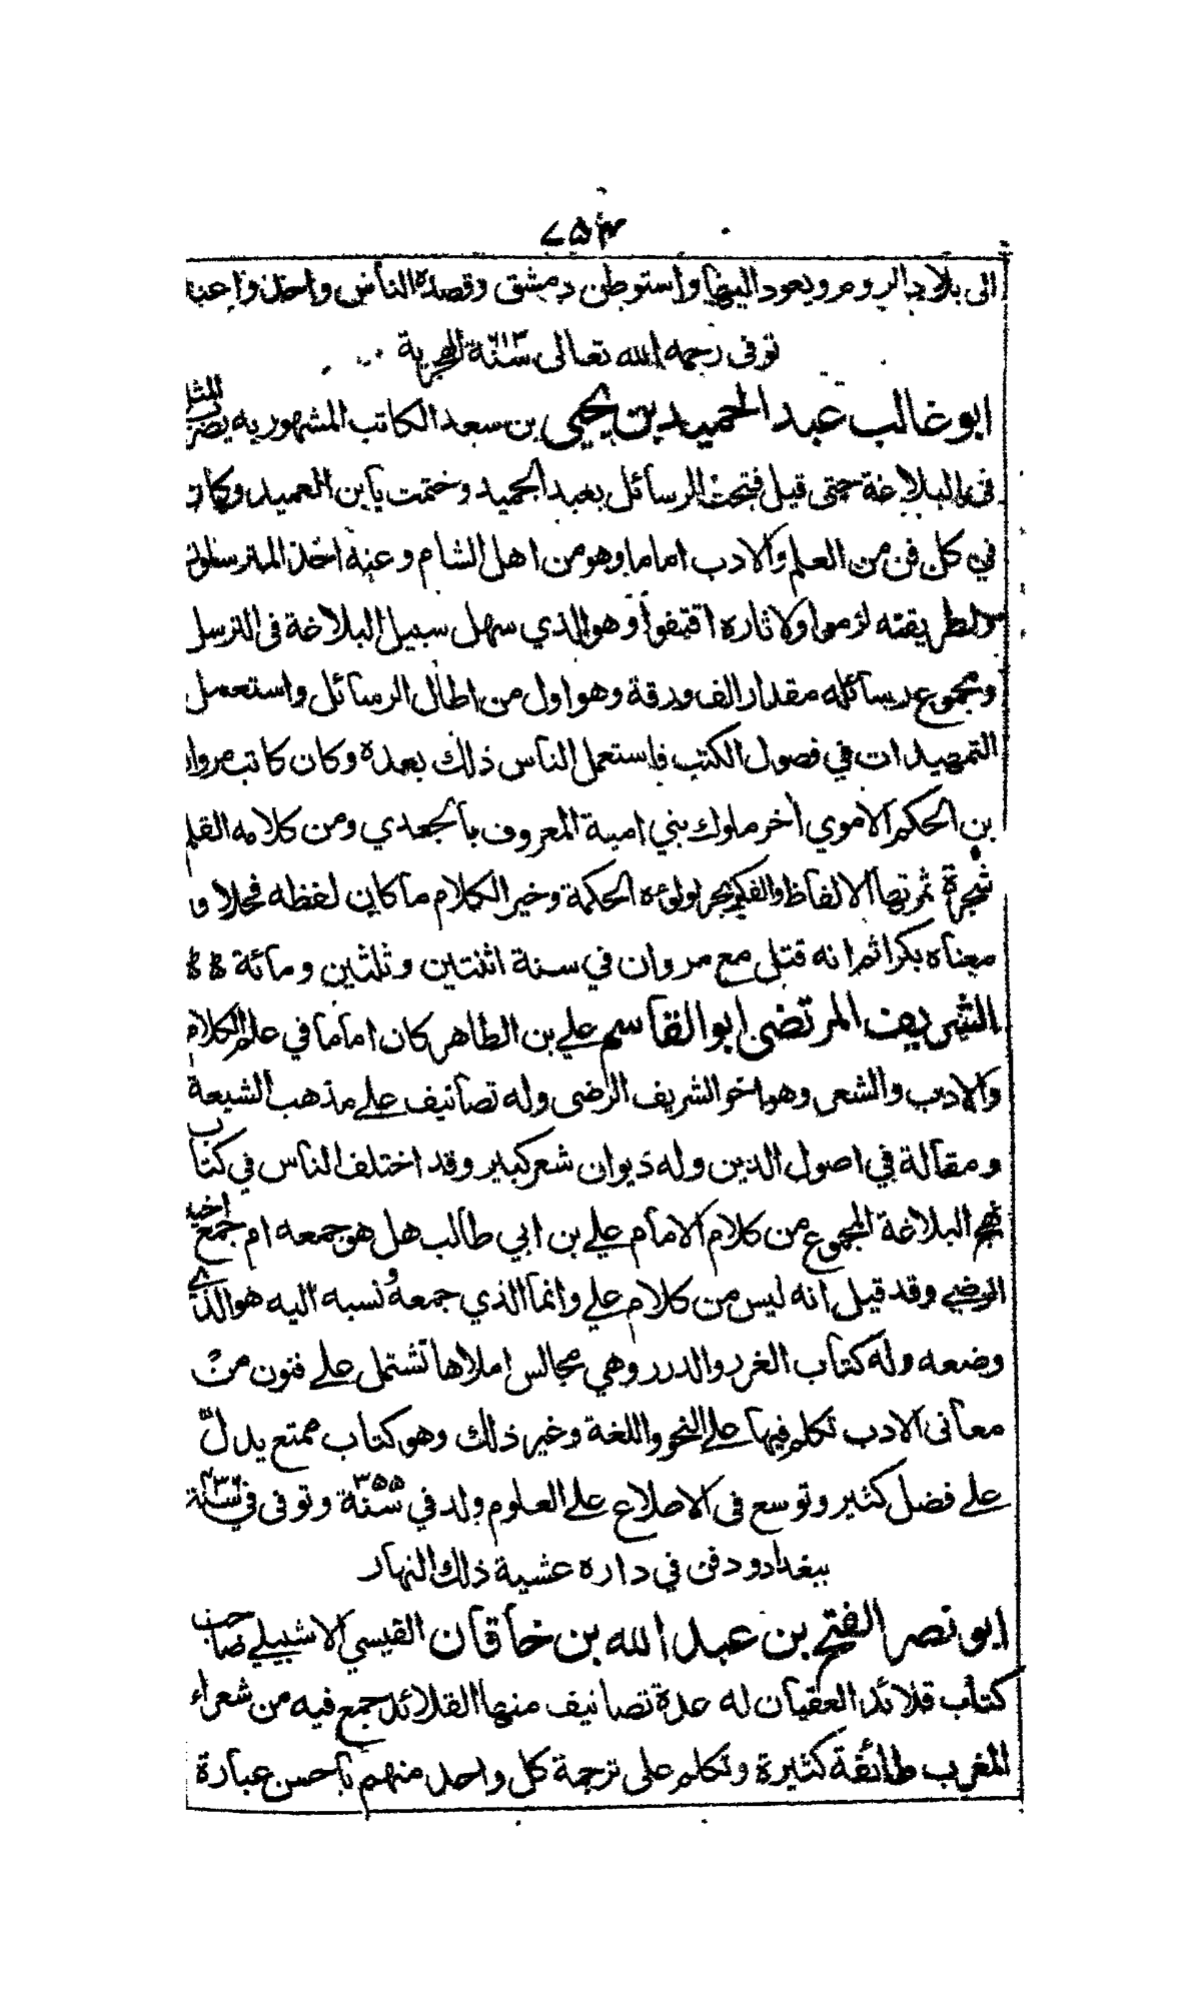 ٧٥٣
الى بلاد الروم ويعود اليها واستوطن دمشق وقصده الناس واخذوا عنه
توفى رحمه الله تعالى سنة ٦١٣ الهجرية
ابو غالب عبد الحميد بن يحيى بن سعد الكاتب المشهور به يضرب المثل
فى البلاغة حتى قيل فتحت الرسائل بعبد الحميد وختمت بابن العميد وكان
في كل فن من العلم والادب اماما وهو من اهل الشام وعنه اخذ المترسلون
ولطريقته لزموا ولاثاره اقتفوا وهو الذي سهل سبيل البلاغة فى الترسل
ومجموع رسائله مقدار الف ورقة وهو اول من اطال الرسائل واستعمل
التمهيدات في فصول الكتب فاستعمل الناس ذلك بعده وكان كاتب مروان
بن الحكم الاموي اخر ملوك بني امية المعروف بالجعدي ومن كلامه القلم
شجرة ثمرتها الالفاظ والفكر بحر لولوءه الحكمة وخير الكلام ما كان لفظه فحلا و
معناه بكرا ثم انه قتل مع مروان في سنة اثنتين وثلثين ومائة
الشريف المرتضى ابو القاسم علي بن الطاهر كان اماما في علم الكلام
والادب والشعر وهو اخو الشريف الرضى وله تصانيف على مذهب الشيعة
ومقالة في اصول الدين وله ديوان شعر كبير وقد اختلف الناس في كتاب
نهج البلاغة المجموع من كلام الامام علي بن ابي طالب هل هو جمعه ام جمع اخيه
الرضي وقد قيل انه ليس من كلام علي وانما الذي جمعه ونسبه اليه هو الذي
وضعه وله كتاب الغرر والدرر وهي مجالس املاها تشتمل على فنون من
معانى الادب تكلم فيها على النحو واللغة وغير ذلك وهو كتاب ممتع يدل
على فضل كثير وتوسع فى الاصلاع على العلوم ولد في سنة ٣٥٥ وتوفى في سنة ٤٣٦
ببغداد ودفن في داره عشية ذلك النهار
ابو نصر الفتح بن عبد الله بن خاقان القيسي الاشبيلي صاحب
كتاب قلائد العقيان له عدة تصانيف منها القلائد جمع فيه من شعراء
المغرب طائفة كثيرة وتكلم على ترجمة كل واحد منهم باحسن عبارة